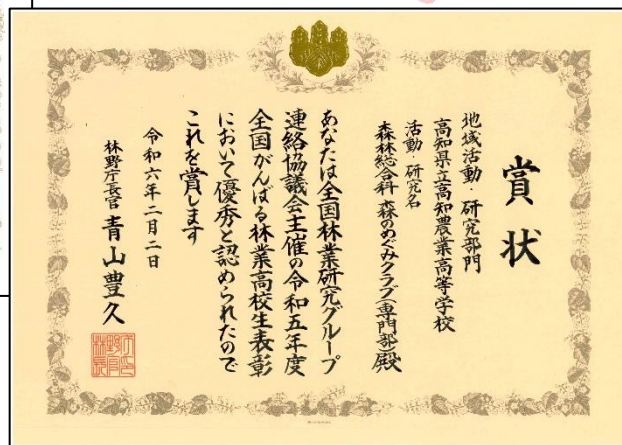 賞状
地域活動・研究部門
高知県立高知農業高等学校
活動・研究名
森林総合科 森のめぐみクラブ(専門部)殿
あなたは全国林業研究グループ
連絡協議会主催の令和五年度
全国がんばる林業高校生表彰
において優秀と認められたので
これを賞します
令和六年二月二日
林野庁長官 青山豊久